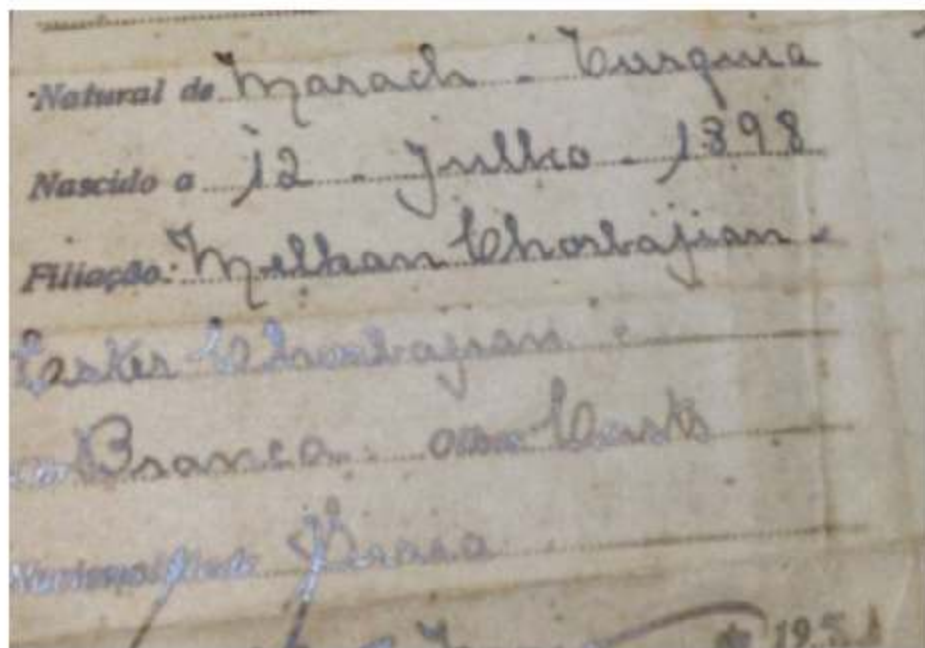 Natural de Marach - Turquia
Nascido a 12 - Julho - 1898
Filiação: Melkan Chorbajian e
Ester Chorbajian
Branca
Nacionalidade
de 195